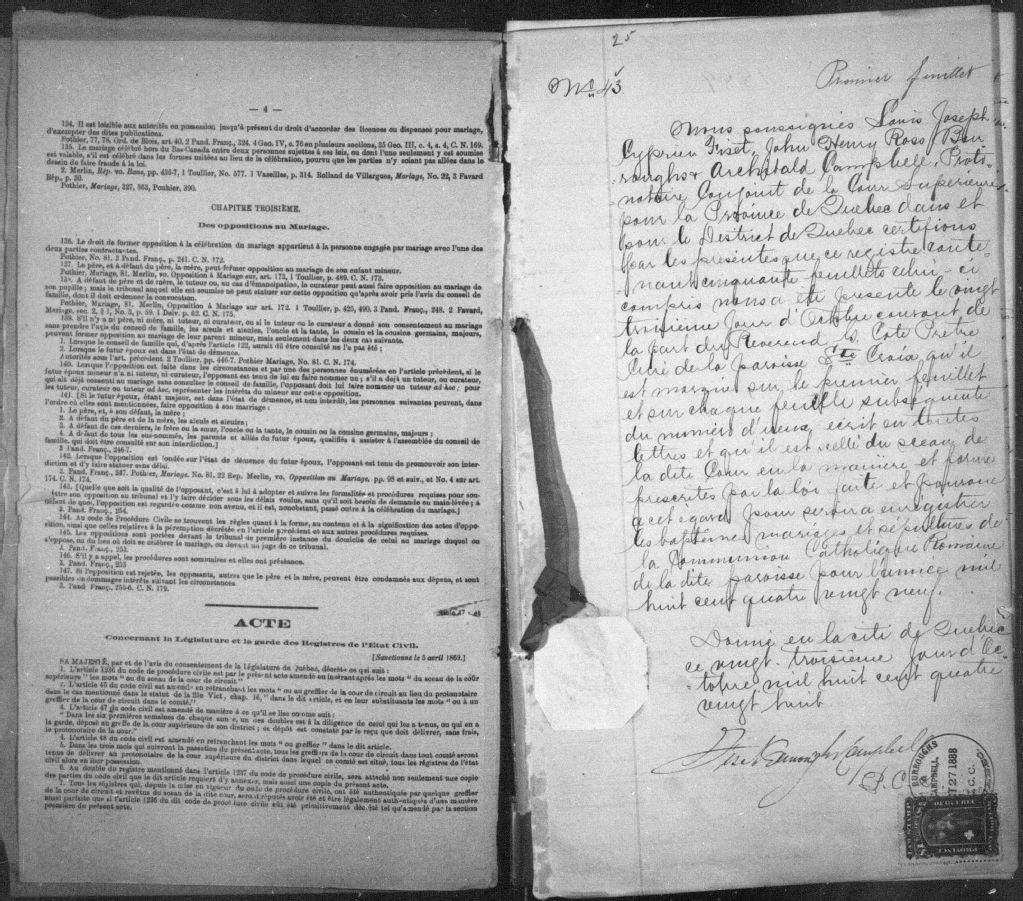 — 4 —
134. Il est loisible aux autorités en possession jusqu'à présent du droit d'accorder des licences ou dispenses pour mariage,
d'exempter des dites publications.
Pothier, 77, 78. Ord. de Blois, art. 40. 2 Pand. Franç., 324. 4 Geo. IV, c. 76 en plusieurs sections, 25 Geo. III, c. 4, s. 4, C. N. 169.
135. Le mariage célébré hors du Bas-Canada entre deux personnes sujettes à ses lois, ou dont l'une seulement y est soumise
est valable, s'il est célébré dans les formes usitées au lieu de la célébration, pourvu que les parties n'y soient pas allées dans le
dessein de faire fraude à la loi.
2. Merlin, Rép. vo. Bans, pp. 435-7, 1 Toullier, No. 577. 1 Vazeilles, p. 314. Rolland de Villargues, Mariage, No. 22, 3 Favard
Rép., p. 30.
Pothier, Mariage, 327, 363, Pouhier, 390.
CHAPITRE TROISIÈME.
Des oppositions au Mariage.
136. Le droit de former opposition à la célébration du mariage appartient à la personne engagée par mariage avec l'une des
deux parties contractantes.
Pothier, No. 81. 2 Pand. Franç., p. 241. C. N. 172.
137. Le père, et à défaut du père, la mère, peut former opposition au mariage de son enfant mineur.
Pothier, Mariage, 81. Merlin, vo. Opposition à Mariage sur, art. 173, 1 Toullier, p. 489. C. N. 173.
138. A défaut de père et de mère, le tuteur ou, au cas d'émancipation, le curateur peut aussi faire opposition au mariage de
son pupille; mais le tribunal auquel elle est soumise ne peut statuer sur cette opposition qu'après avoir pris l'avis du conseil de
famille, dont il doit ordonner la convocation.
Pothier, Mariage, 81. Merlin, Opposition à Mariage sur art. 172. 1 Toullier, p. 425, 490. 3 Pand. Franç., 248. 2 Favard,
Mariage, sec. 2, § 1, No. 3, p. 59. 1 Delv. p. 62. C. N. 175.
139. S'il n'y a ni père, ni mère, ni tuteur, ni curateur, ou si le tuteur ou le curateur a donné son consentement au mariage
sans prendre l'avis du conseil de famille, les aïeuls et aïeules, l'oncle et la tante, le cousin et la cousine germains, majeurs,
peuvent former opposition au mariage de leur parent mineur, mais seulement dans les deux cas suivants.
1. Lorsque le conseil de famille qui, d'après l'article 122, aurait dû être consulté ne l'a pas été;
2. Lorsque le futur époux est dans l'état de démence.
Autorités sous l'art. précédent. 2 Toullier, pp. 446-7. Pothier Mariage, No. 81. C. N. 174.
140. Lorsque l'opposition est faite dans les circonstances et par une des personnes énumérées en l'article précédent, si le
futur époux mineur n'a ni tuteur, ni curateur, l'opposant est tenu de lui en faire nommer un; s'il a déjà un tuteur, ou curateur,
qui ait déjà consenti au mariage sans consulter le conseil de famille, l'opposant doit lui faire nommer un tuteur ad hoc; pour
les tuteur, curateur ou tuteur ad hoc, représenter les intérêts du mineur sur cette opposition.
141. [Si le futur époux, étant majeur, est dans l'état de démence, et non interdit, les personnes suivantes peuvent, dans
l'ordre où elles sont mentionnées, faire opposition à son mariage:
1. Le père, et, à son défaut, la mère;
2. A défaut du père et de la mère, les aïeuls et aïeules;
3. A défaut de ces derniers, le frère ou la sœur, l'oncle ou la tante, le cousin ou la cousine germains, majeurs;
4. A défaut de tous les sus-nommés, les parents et alliés du futur époux, qualifiés à assister à l'assemblée du conseil de
famille, qui doit être consulté sur son interdiction.]
2 Pand. Franç., 246-7.
142. Lorsque l'opposition est fondée sur l'état de démence du futur époux, l'opposant est tenu de promouvoir son inter-
diction et d'y faire statuer sans délai.
2. Pand. Franç., 247. Pothier, Mariage. No. 81, 22 Rep. Merlin, vo. Opposition au Mariage, pp. 98 et suiv., et No. 4 sur art.
174. C. N. 174.
143. [Quelle que soit la qualité de l'opposant, c'est à lui à adopter et suivre les formalités et procédures requises pour sou-
mettre son opposition au tribunal et l'y faire décider sous les délais voulus, sans qu'il soit besoin de demande en main-levée; à
défaut de quoi, l'opposition est regardée comme non avenu, et il est, nonobstant, passé outre à la célébration du mariage.]
2. Pand. Franç., 254.
144. Au code de Procédure Civile se trouvent les règles quant à la forme, au contenu et à la signification des actes d'oppo-
sition, ainsi que celles relatives à la péremption décrétée en l'article précédent et aux autres procédures requises.
145. Les oppositions sont portées devant le tribunal de première instance du domicile de celui au mariage duquel on
s'oppose, ou du lieu où doit se célébrer le mariage, ou devant un juge de ce tribunal.
3. Pand. Franç., 253.
146. S'il y a appel, les procédures sont sommaires et elles ont préséance.
3. Pand. Franç., 253
147. Si l'opposition est rejetée, les opposants, autres que le père et la mère, peuvent être condamnés aux dépens, et sont
passibles de dommages intérêts suivant les circonstances.
3. Pand Franç., 255-6. C. N. 179.
ACTE
Concernant la Législature et la garde des Registres de l'Etat Civil.
[Sanctionné le 5 avril 1869.]
SA MAJESTÉ, par et de l'avis du consentement de la législature de Québec, décrète ce qui suit:
1. L'article 1236 du code de procédure civile est par le présent acte amendé en insérant après les mots "du sceau de la cour
supérieure" les mots "ou du sceau de la cour de circuit."
2. L'article 45 du code civil est amendé en retranchant les mots "ou au greffier de la cour de circuit au lieu du protonotaire
dans le cas mentionné dans le statut de la 25e Vict., chap. 16," dans le dit article, et en leur substituant les mots "ou au
greffier de la cour de circuit dans le comté."
3. L'article 47 du code civil est amendé de manière à ce qu'il se lise comme suit:
"Dans les six premières semaines de chaque année, un des doubles est à la diligence de celui qui les a tenus, ou qui en a
la garde, déposé au greffe de la cour supérieure de son district; ce dépôt est constaté par le reçu que doit délivrer, sans frais,
le protonotaire de la cour."
4. L'article 48 du code civil est amendé en retranchant les mots "ou greffier" dans le dit article.
5. Dans les trois mois qui suivront la passation du présent acte, tous les greffiers de la cour de circuit dans tout comté seront
tenus de délivrer au protonotaire de la cour supérieure du district dans lequel ce comté est situé, tous les registres de l'état
civil alors en leur possession.
6. Au double du registre mentionné dans l'article 1237 du code de procédure civile, sera attaché non seulement une copie
des parties du code civil que le dit article requiert d'y annexer, mais aussi une copie du présent acte.
7. Tous les registres qui, depuis la mise en vigueur du code de procédure civile, ont été authentiqués par quelque greffier
de la cour de circuit et revêtus du sceau de la dite cour, seront réputés avoir été et être légalement authentiqués d'une manière
aussi parfaite que si l'article 1236 du dit code de procédure civile eût été primitivement décrété tel qu'amendé par la section
25
No 43
Premier feuillet
Nous soussignés Louis Joseph
Cyprien Fiset, John Henry Ross Bur
roughs & Archibald Campbell, Proto
notaire Conjoint de la Cour Supérieure
pour la Province de Québec dans et
pour le District de Québec certifions
par les présentes que ce registre conte
nant cinquante feuillets celui-ci
compris nous a été présenté le vingt
troisième jour d'Octobre courant de
la part du Révérend Cote Prêtre
Curé de la paroisse Ste Croix qu'il
est marqué sur le premier feuillet
et sur chaque feuillet subséquent
du numéro d'iceux écrit en toutes
lettres et qu'il est scellé du sceau de
la dite Cour en la manière et forme
prescrites par la loi faite et pourvue
à cet égard pour servir à enregistrer
les baptêmes mariages et sépultures de
la Communion Catholique Romaine
de la dite paroisse pour l'année mil
huit cent quatre vingt neuf.
Donné en la cité de Québec
ce vingt troisième jour d'Oc
tobre mil huit cent quatre
vingt huit
Fiset Burroughs Campbell
P.C.S.
BURROUGHS
CAMPBELL
OCT 27 1888
C. C. C.
QUEBEC
PROVINCE